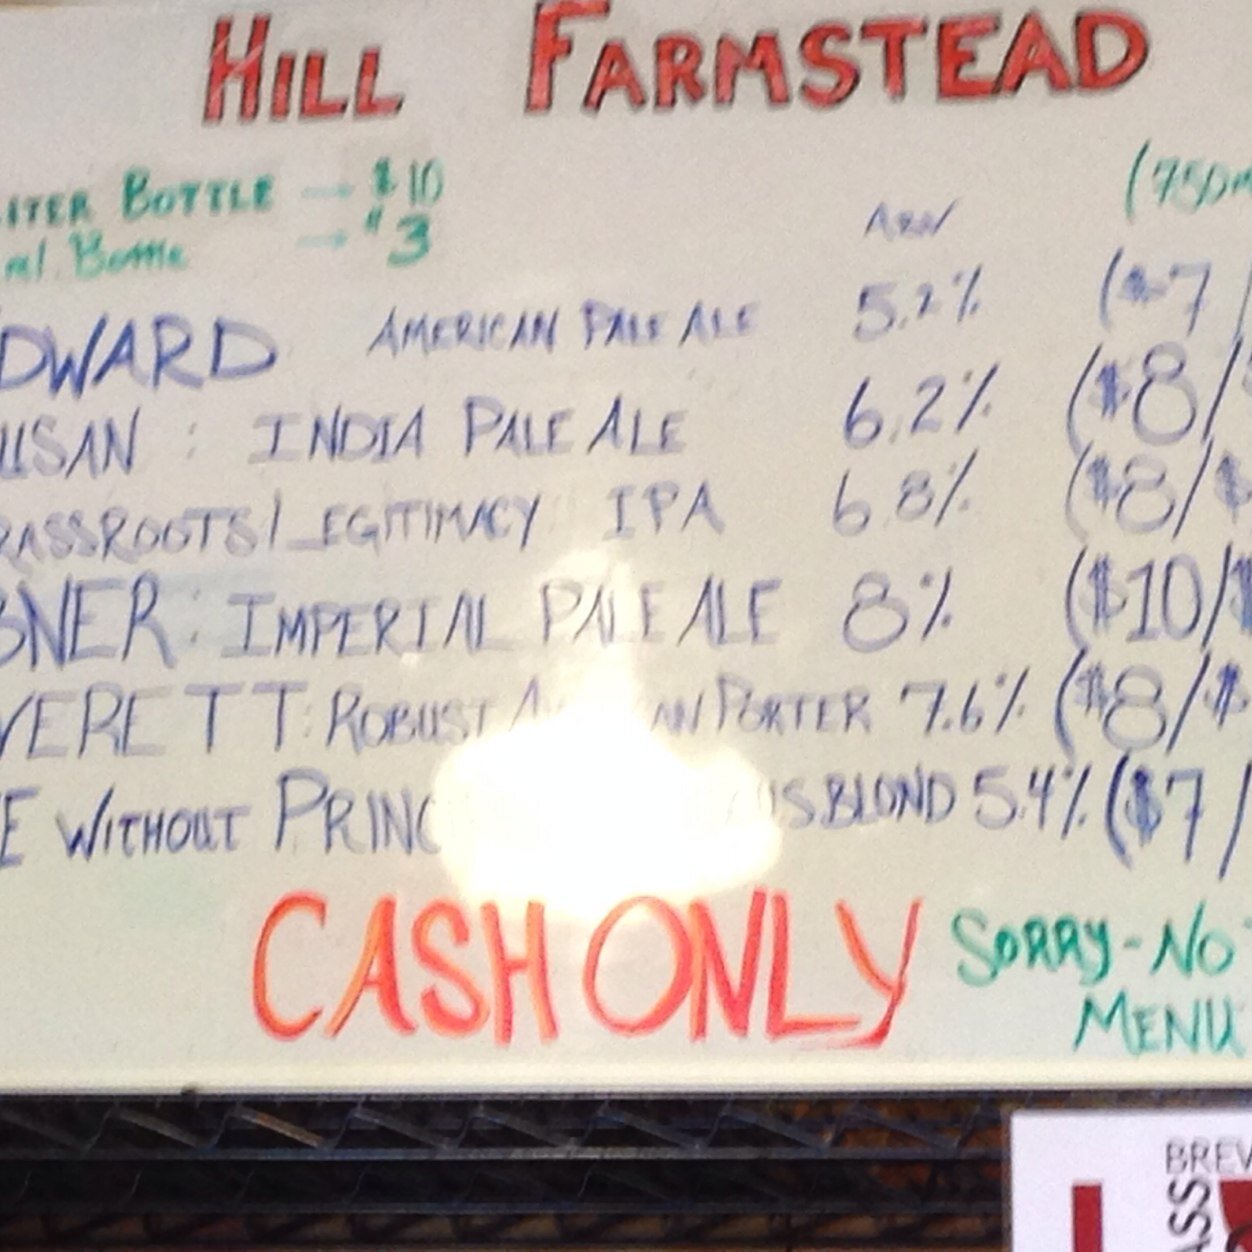 HILL FARMSTEAD
ITER BOTTLE → $10
ml. Bottle → " 3
ABV (750m
DWARD AMERICAN PALE ALE 5.2% ($7/
USAN: INDIA PALE ALE 6.2% ($8/$
RASSROOTS/LEGITIMACY IPA 6.8% ($8/$
BNER: IMPERIAL PALE ALE 8% ($10/$
VERETT: ROBUST AN PORTER 7.6% ($8/$
E WITHOUT PRINC US BLOND 5.4% ($7/
CASH ONLY SORRY-NO
MENU
BREW
ASS